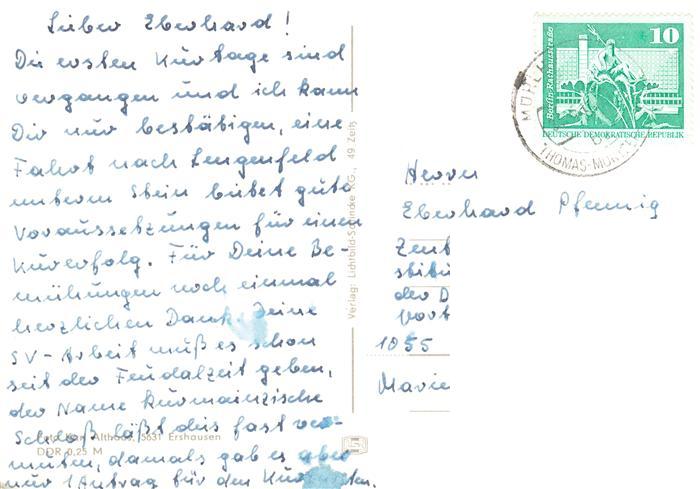 Lieber Eberhard!
Die ersten Kurtage sind
vergangen und ich kann
Dir nur bestätigen, eine
Fahrt nach Lengenfeld
unterm Stein bietet gute
Voraussetzungen für einen
Kurerfolg. Für Deine Be-
mühungen noch einmal
herzlichen Dank. Deine
SV-Arbeit muß es schon
seit der Feudalzeit geben,
der Name Kurmainzische
Schloß läßt dies fast ver-
muten, damals gab es aber
nur 1 Antrag für den Kurfürsten.
Foto: Karl Althaus, 5631 Ershausen
DDR 0,25 M
Verlag: Lichtbild-Schincke KG., 49 Zeitz
10
Berlin, Rathausstraße
DEUTSCHE DEMOKRATISCHE REPUBLIK
THOMAS-MÜNTZER
Herrn
Eberhard Pfennig
Zent
der D
port
1055
Marie